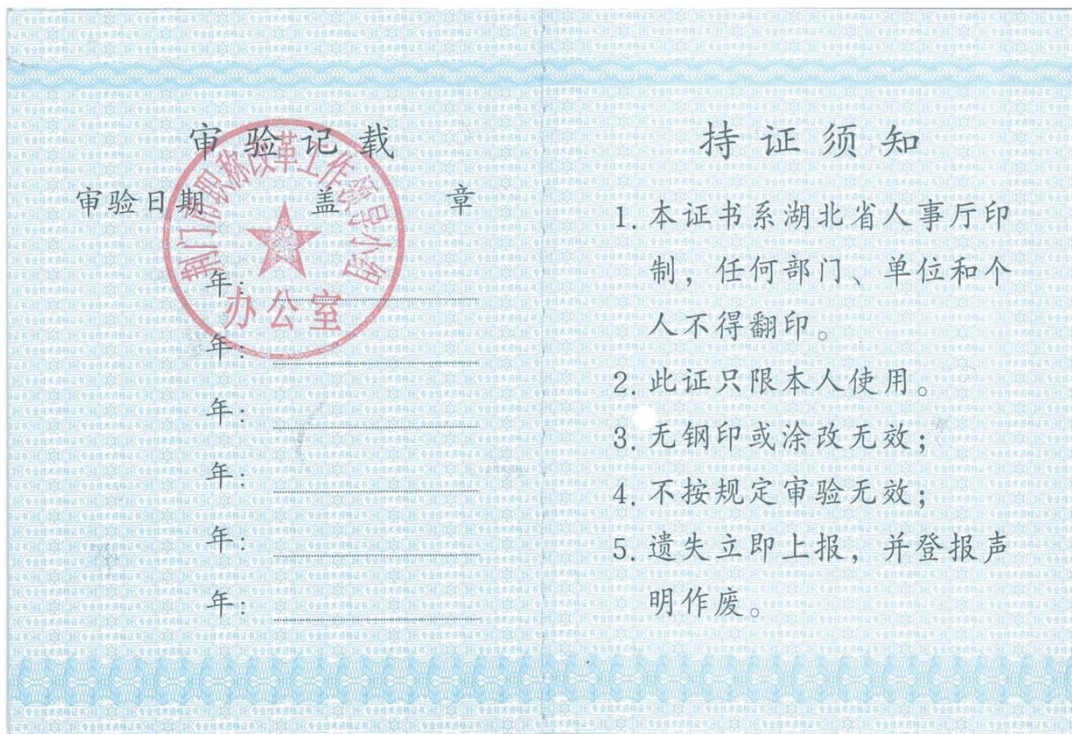 审验记载
审验日期 盖 章
年:
年:
年:
年:
年:
年:
荆门市职称改革工作领导小组
办公室
持证须知
1. 本证书系湖北省人事厅印
制，任何部门、单位和个
人不得翻印。
2. 此证只限本人使用。
3. 无钢印或涂改无效；
4. 不按规定审验无效；
5. 遗失立即上报，并登报声
明作废。